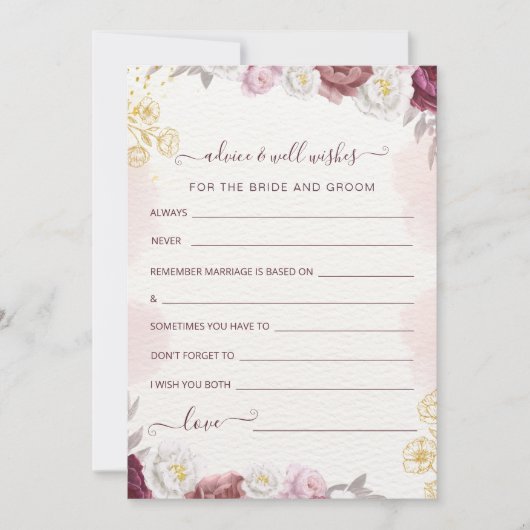 advice & well wishes
FOR THE BRIDE AND GROOM
ALWAYS
NEVER
REMEMBER MARRIAGE IS BASED ON
&
SOMETIMES YOU HAVE TO
DON'T FORGET TO
I WISH YOU BOTH
love